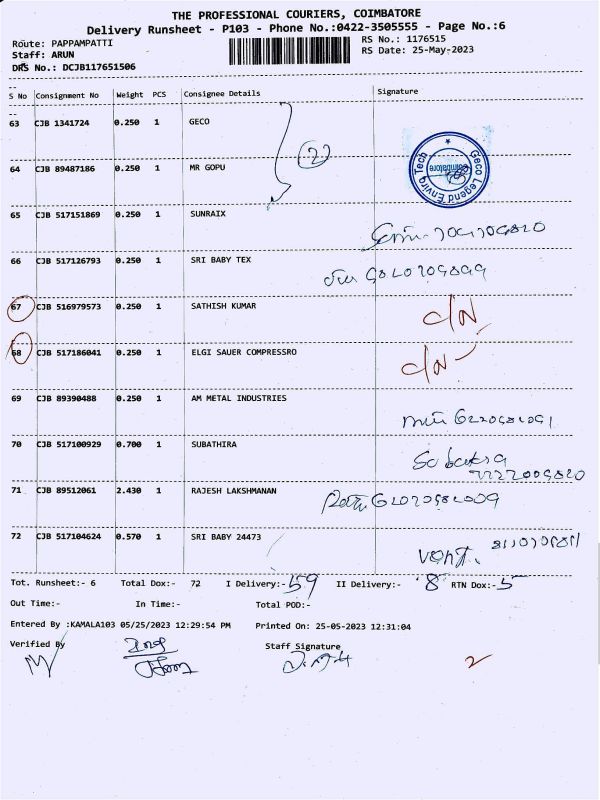 THE PROFESSIONAL COURIERS, COIMBATORE
Delivery Runsheet - P103 - Phone No.:0422-3505555 - Page No.:6
Route: PAPPAMPATTI
RS No.: 1176515
Staff: ARUN
RS Date: 25-May-2023
DRS No.: DCJB117651506
S No Consignment No Weight PCS Consignee Details Signature
63 CJB 1341724 0.250 1 GECO
2
Geco Legend Enviro Tech
Coimbatore
64 CJB 89487186 0.250 1 MR GOPU
65 CJB 517151869 0.250 1 SUNRAIX
66 CJB 517126793 0.250 1 SRI BABY TEX
67 CJB 516979573 0.250 1 SATHISH KUMAR
C/N
68 CJB 517186041 0.250 1 ELGI SAUER COMPRESSRO
C/N
69 CJB 89390488 0.250 1 AM METAL INDUSTRIES
70 CJB 517100929 0.700 1 SUBATHIRA
71 CJB 89512061 2.430 1 RAJESH LAKSHMANAN
72 CJB 517104624 0.570 1 SRI BABY 24473
Tot. Runsheet:- 6 Total Dox:- 72 I Delivery:- 59 II Delivery:- 8 RTN Dox:- 5
Out Time:- In Time:- Total POD:-
Entered By :KAMALA103 05/25/2023 12:29:54 PM Printed On: 25-05-2023 12:31:04
Verified By Staff Signature
2